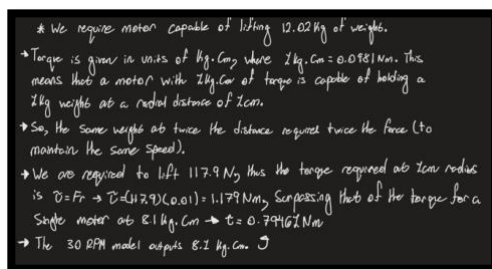 * We require motor capable of lifting 12.02 Kg of weight.
→ Torque is given in units of Kg.Cm, where 1Kg.Cm = 0.0981Nm. This
means that a motor with 1Kg.Cm of torque is capable of holding a
1Kg weight at a radial distance of 1cm.
→ So, the same weight at twice the distance requires twice the force (to
maintain the same speed).
→ We are required to lift 117.9 N, thus the torque required at 1cm radius
is τ=Fr → τ=(117.9)(0.01) = 1.179 Nm, Surpassing that of the torque for a
Single motor at 8.1 Kg.Cm → τ = 0.79461Nm
→ The 30 RPM model outputs 8.1 Kg.Cm.